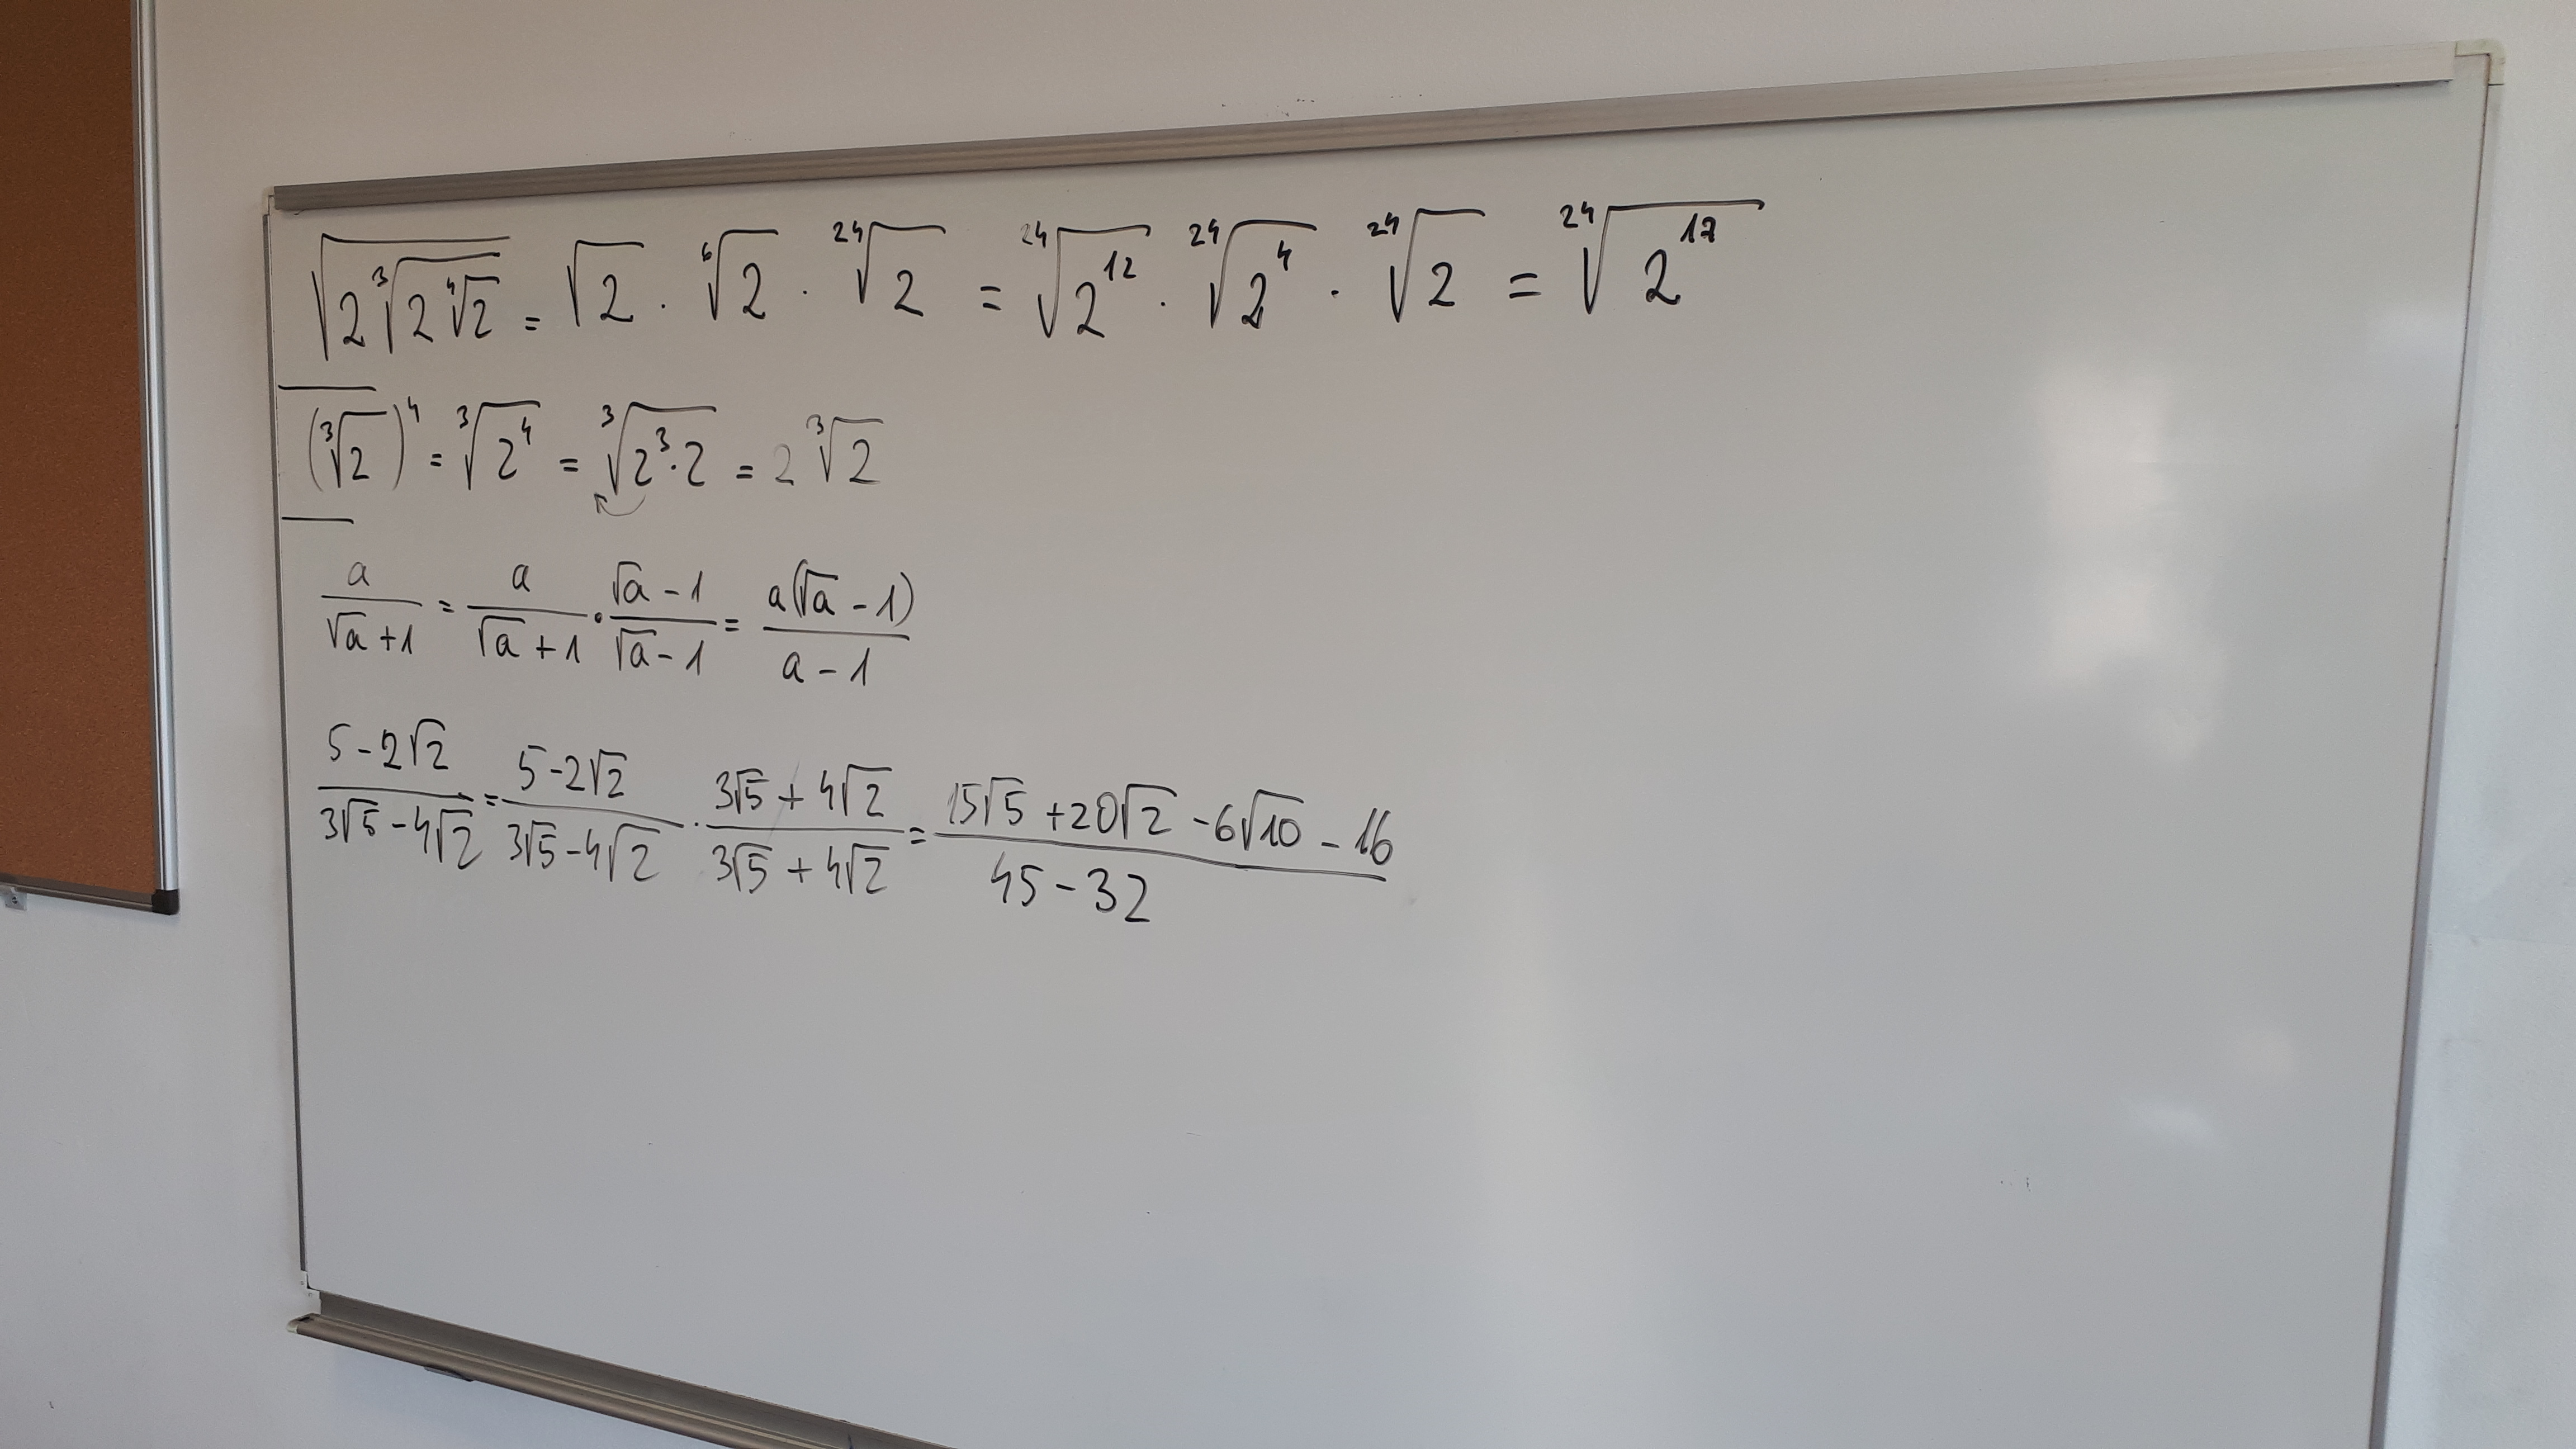 √(2∛(2∜2)) = √2 · ⁶√2 · ²⁴√2 = ²⁴√(2¹²) · ²⁴√(2⁴) · ²⁴√2 = ²⁴√(2¹⁷)
(∛2)⁴ = ∛(2⁴) = ∛(2³·2) = 2∛2
a/(√a+1) = a/(√a+1) · (√a-1)/(√a-1) = a(√a-1)/(a-1)
(5-2√2)/(3√5-4√2) = (5-2√2)/(3√5-4√2) · (3√5+4√2)/(3√5+4√2) = (15√5+20√2-6√10-16)/(45-32)